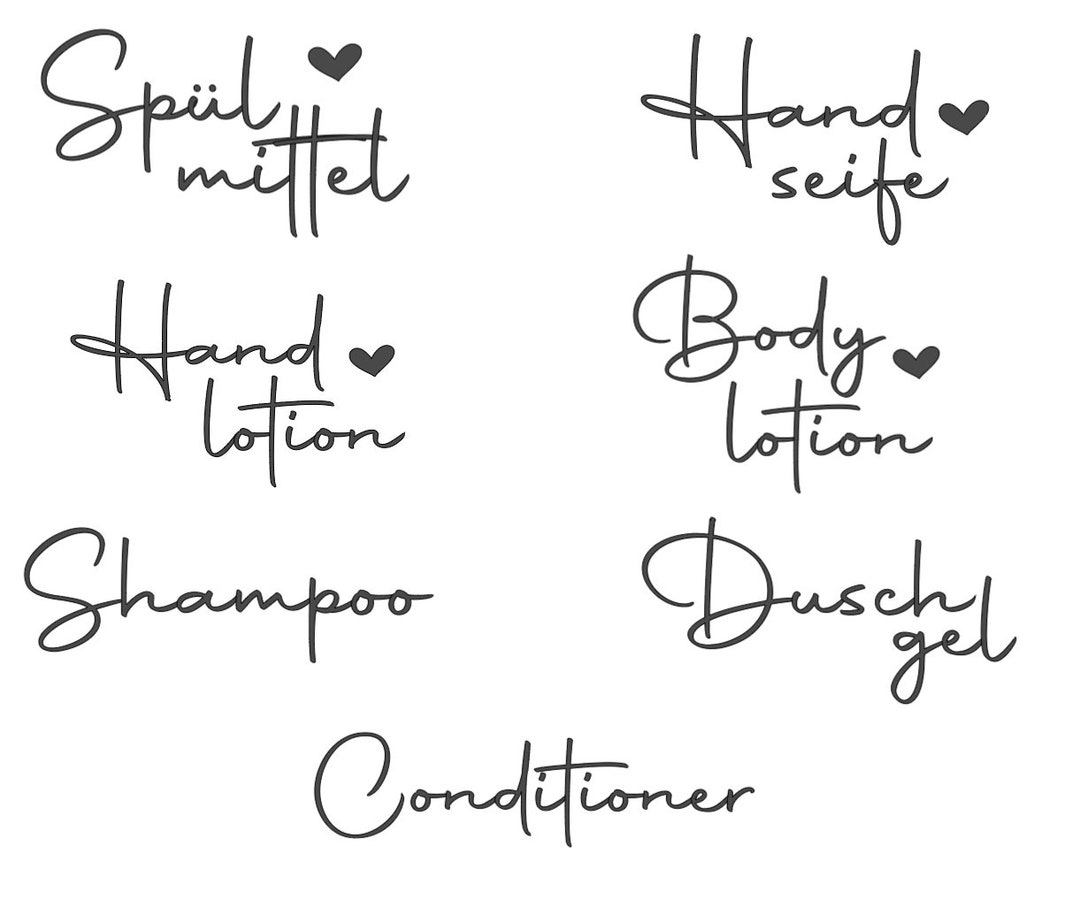 Spül
mittel
Hand
seife
Hand
lotion
Body
lotion
Shampoo
Dusch
gel
Conditioner